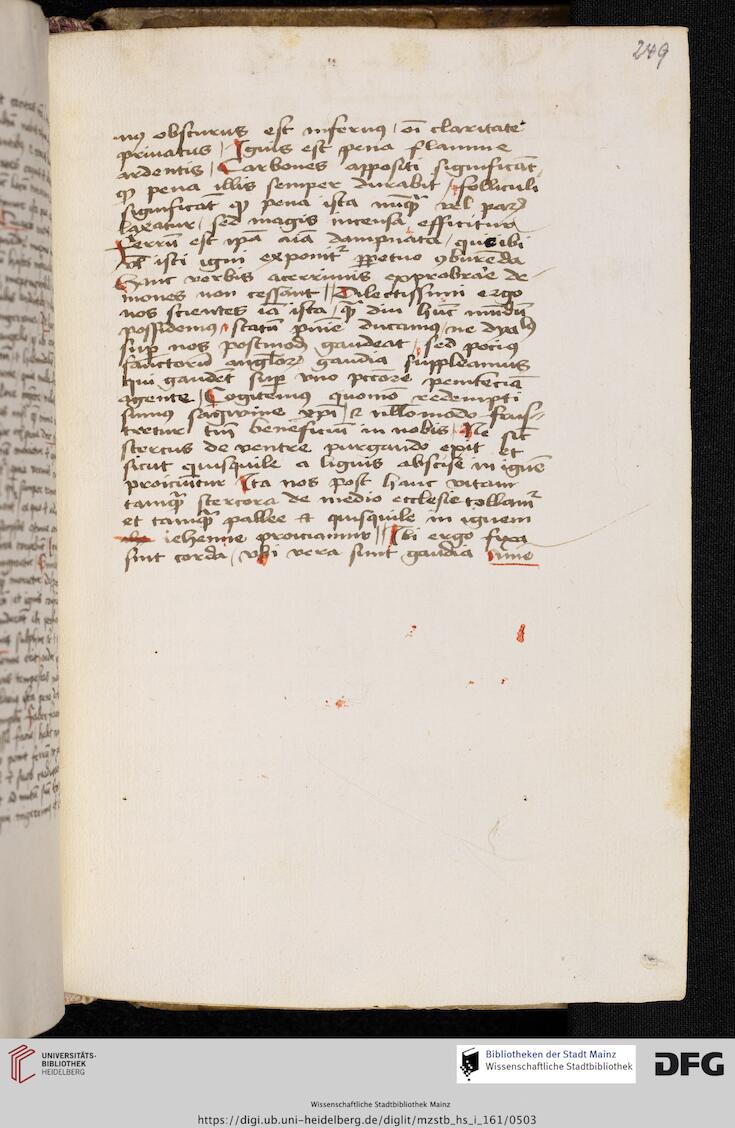 249
nus obscurus est infernus / oi claritate
privatus / Ignis est pena flamme
ardentis / Carbones appositi significāt
qd pena illis semper durabit / folliculi
significāt qd pena ista nūqȝ vel parū
laxatur / sed magis incensa efficitur
ferrū est ipā aiā dampnata / que ibi
isti igni exponitr ppetuo
hanc verbis acerrimis exprobrare de
mones non cessant // Dilectissimi ergo
nos scientes iā ista / qȝ diu huc mūdū
possidemus / statū ducamus / ne dyabs
sup nos postmodȝ gaudeat / sed pocius
sanctorū anglorȝ gaudia suppleamus
qui gaudēt sup vno pctore penitēciā
agente / Cogitemus quomo redempti
sumus sagwine xpi / et nullomodo frus-
tretur tm̄ beneficiū in nobis / Ne sic
stercus de ventre purgando exit et
sicut quisquile a lignis abscise in ignē
proiciuntur Ita nos post hanc vitam
tamqȝ stercora de medio ecclesie tollamr
et tamqȝ pallee et quisquile in ignem
iehenne proiciamur // Ibi ergo fyxa
sint corda / vbi vera sunt gaudia
UNIVERSITÄTS-
BIBLIOTHEK
HEIDELBERG
Bibliotheken der Stadt Mainz
Wissenschaftliche Stadtbibliothek
DFG
Wissenschaftliche Stadtbibliothek Mainz
https://digi.ub.uni-heidelberg.de/diglit/mzstb_hs_i_161/0503